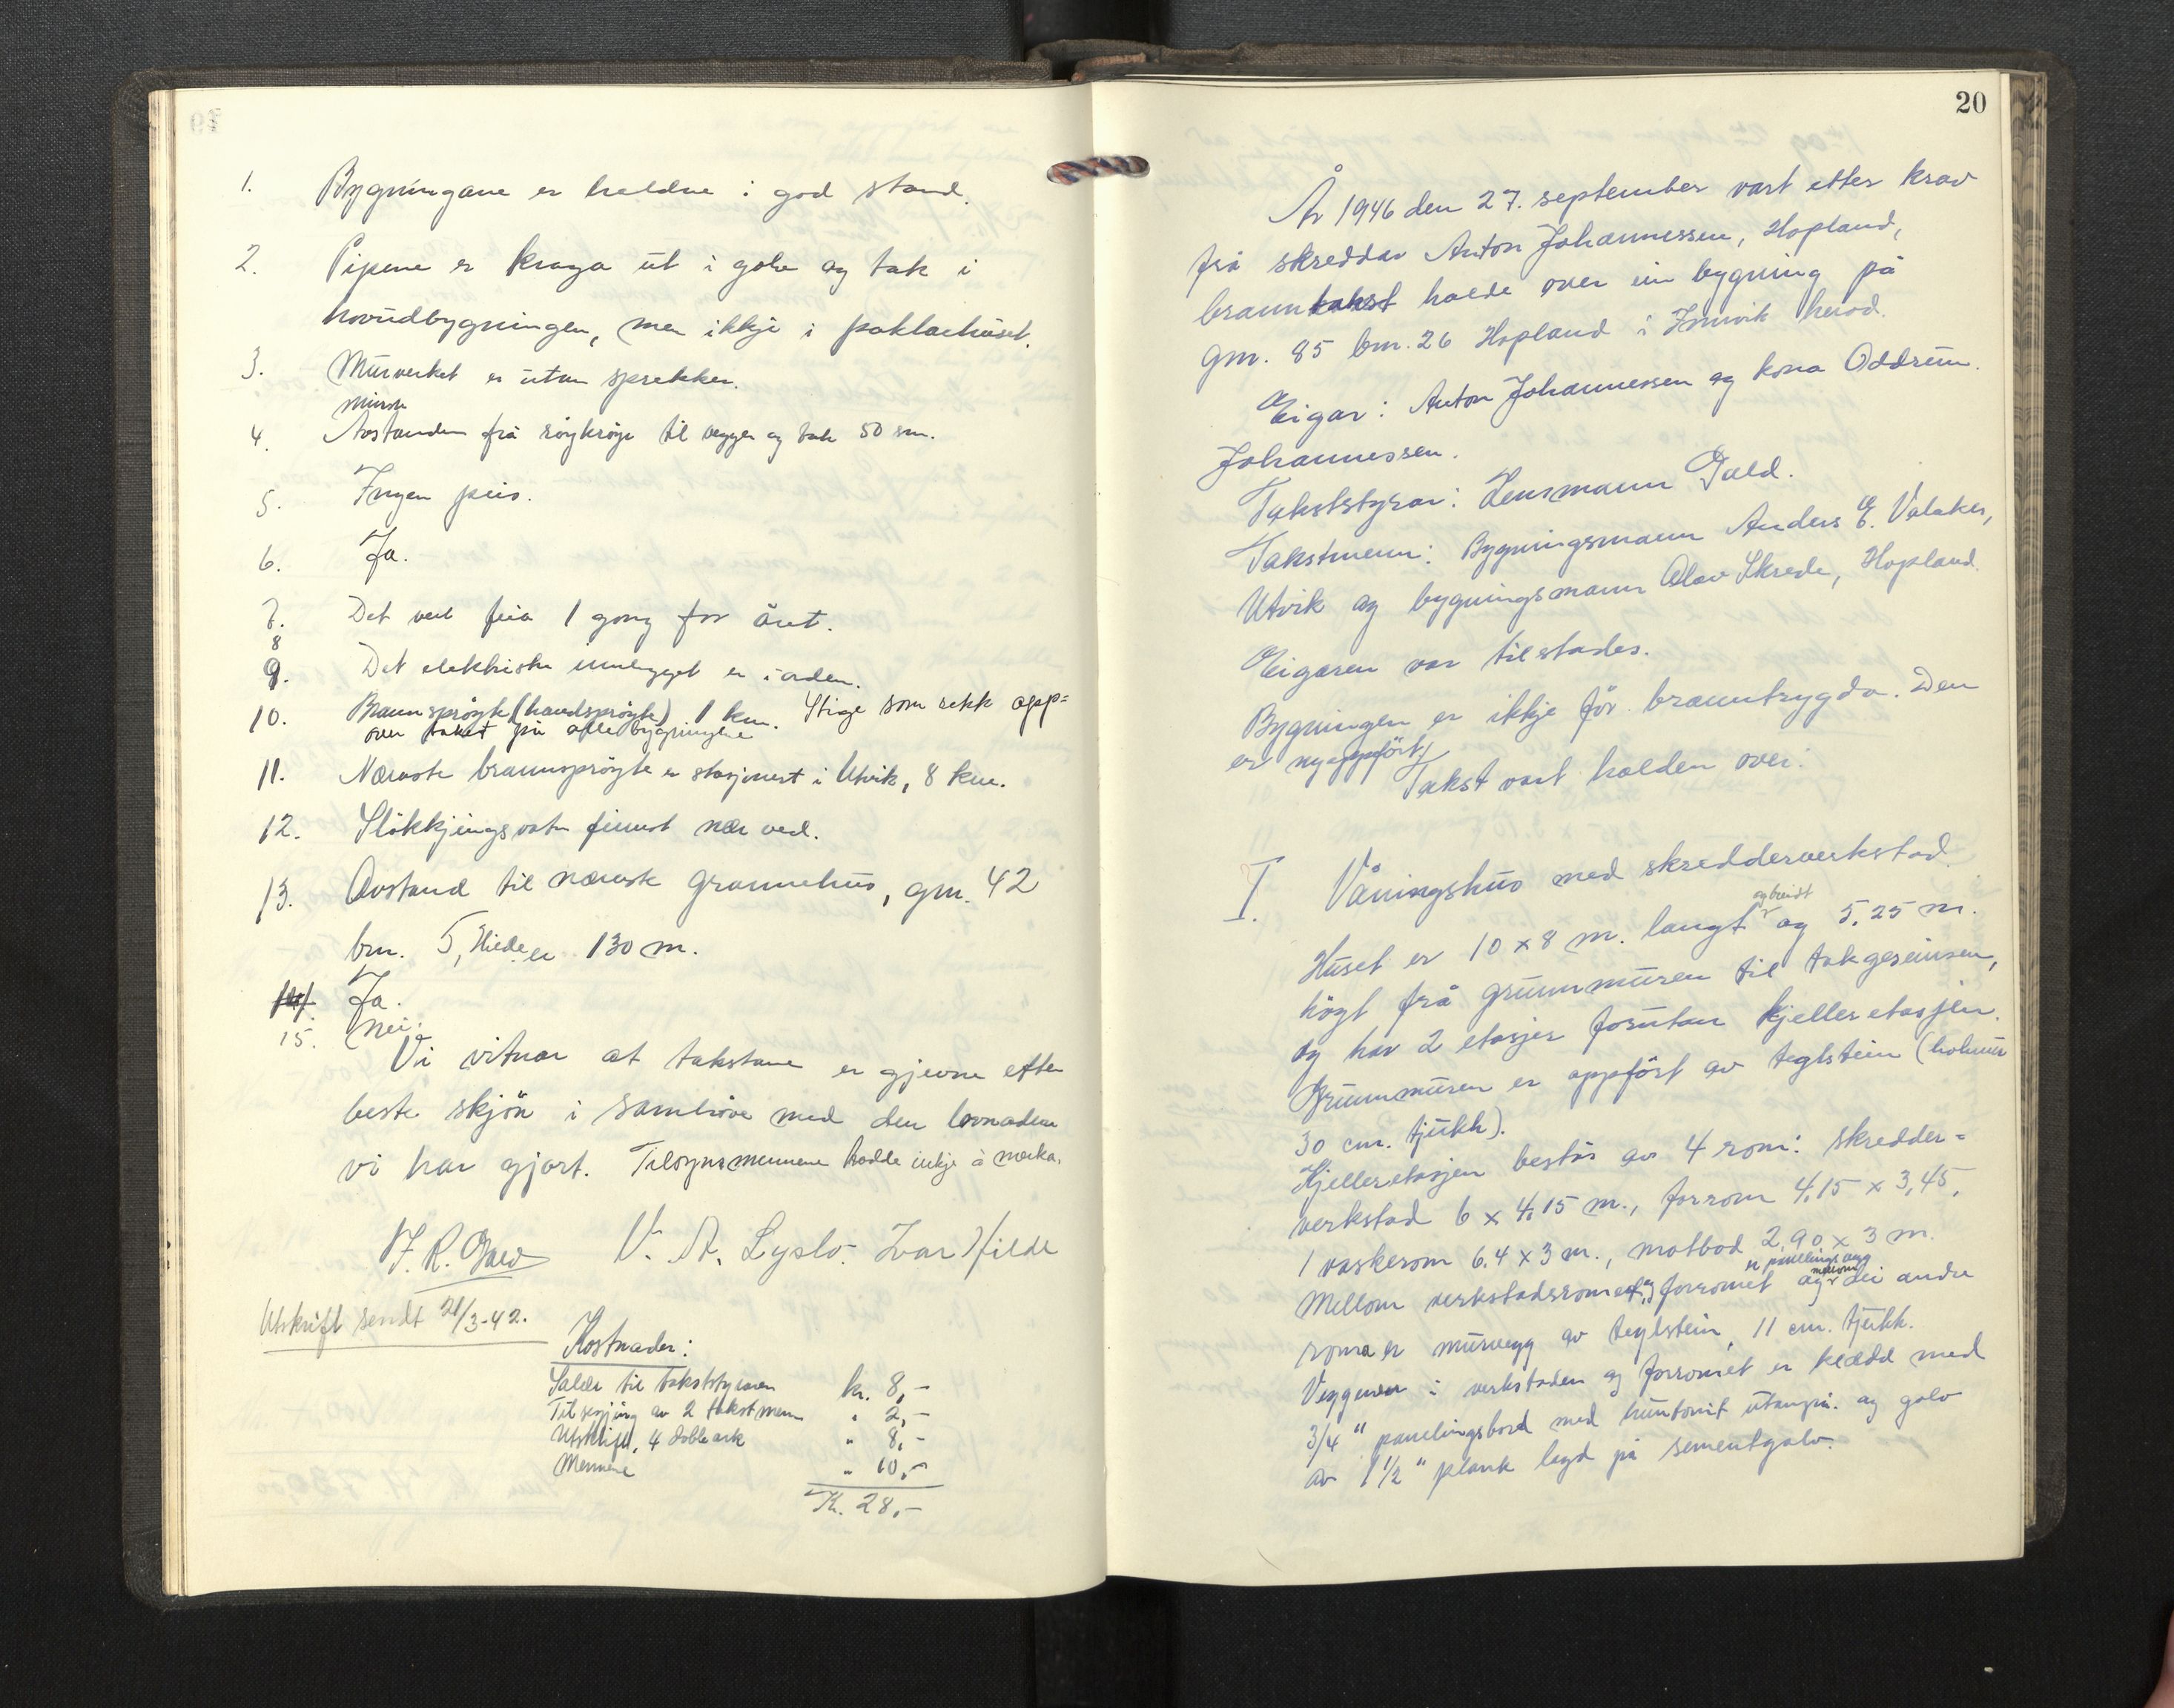 1. Bygningane er haldne i god stand.
2. Pipene er kraga ut i golv og tak i
hovudbygningen, men ikkje i
3. Murverket er utan sprekker.
minste
4. Avstanden frå röykröyr til vegger og tak 50 sm.
5. Ingen peis.
6. Ja.
7. Det vert feia 1 gong for året.
8
9. Det elektriske innlegget er i orden.
10. Brannsprøyte (handsprøyte) 1 km. Stige som rekk opp=
over taket på alle bygningene
11. Næraste brannsprøyte er stasjonert i Utvik, 8 km.
12. Slökkjingsvatn finnst nær ved.
13. Avstand til næraste grannehus, gnr. 42
bnr. 5, Hilde er 130 m.
14. Ja.
15. Nei.
Vi vitnar at takstane er gjevne etter
beste skjön i samhöve med den lovnaden
vi har gjort. Tilsynsmennene hadde inkje å merka.
V. A. Lyslo. Ivar Hilde
Utskrift sendt 21/3-42.
Kostnader:
Salær til takststyraren kr. 8,-
Tilsegjing av 2 takstmenn " 2,-
Utskrift, 4 doble ark " 8,-
Mennene " 10,-
Kr. 28,-
20
År 1946 den 27. september vart etter krav
frå skreddar Anton Johannessen, Hopland,
branntakst halde over ein bygning på
gnr. 85 bnr. 26 Hopland i Innvik herad.
Eigar: Anton Johannessen og kona Oddrun
Johannessen.
Takststyrar: Lensmann Gald.
Takstmenn: Bygningsmann Anders E. Valaker,
Utvik og bygningsmann Olav Skrede, Hopland.
Eigaren var tilstades.
Bygningen er ikkje för branntrygda. Den
er nyoppfört.
Takst vart halden over:
I. Våningshus med skreddarverkstad.
og breidt
Huset er 10 x 8 m. langt og 5,25 m.
högt frå grunnmuren til takgesimsen,
og har 2 etasjer forutan kjelleretasjen.
Grunnmuren er oppfört av teglstein (holmur
30 cm. tjukk).
Kjelleretasjen består av 4 rom: skredder=
verkstad 6 x 4,15 m., forrom 4,15 x 3,45,
1 vaskerom 6,4 x 3 m., matbod 2,90 x 3 m.
mellom
Mellom verkstadsromet og forromet og dei andre
roma er murvegg av teglstein, 11 cm. tjukk.
Veggene i verkstaden og forromet er kledd med
3/4" panelingsbord med huntonit utanpå. og golv
av 1 1/2" plank lagd på sementgolv.